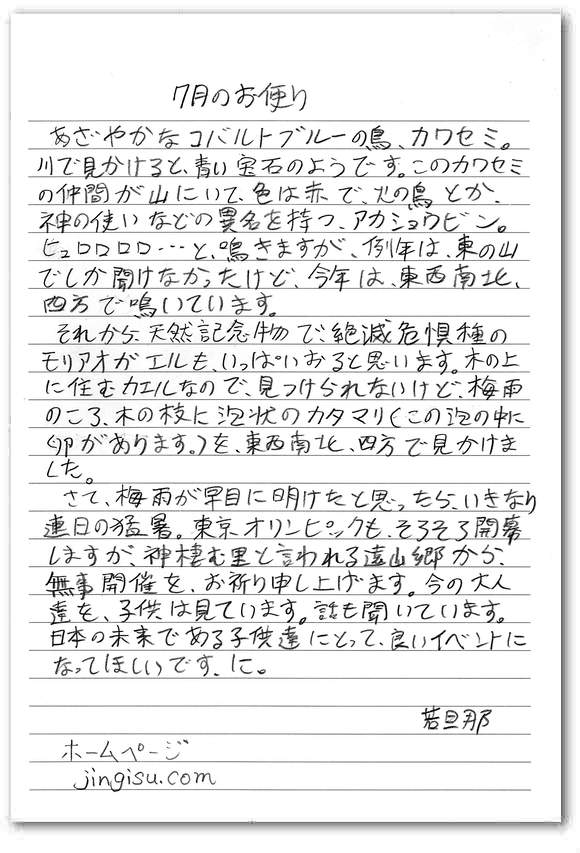 7月のお便り
あざやかなコバルトブルーの鳥、カワセミ。
川で見かけると、青い宝石のようです。このカワセミ
の仲間が山にいて、色は赤で、火の鳥とか、
神の使いなどの異名を持つ、アカショウビン。
ヒュロロロロ…と、鳴きますが、例年は、東の山
でしか聞けなかったけど、今年は、東西南北、
四方で鳴いています。
それから、天然記念物で、絶滅危惧種の
モリアオガエルも、いっぱいおると思います。木の上
に住むカエルなので、見つけられないけど、梅雨
のころ、木の枝に泡状のカタマリ(この泡の中に
卵があります。)を、東西南北、四方で見かけま
した。
さて、梅雨が早目に明けたと思ったら、いきなり
連日の猛暑。東京オリンピックも、そろそろ開幕
しますが、神棲む里と言われる遠山郷から、
無事開催を、お祈り申し上げます。今の大人
達を、子供は見ています。話も聞いています。
日本の未来である子供達にとって、良いイベントに
なってほしいです、に。
若旦那
ホームページ
jingisu.com